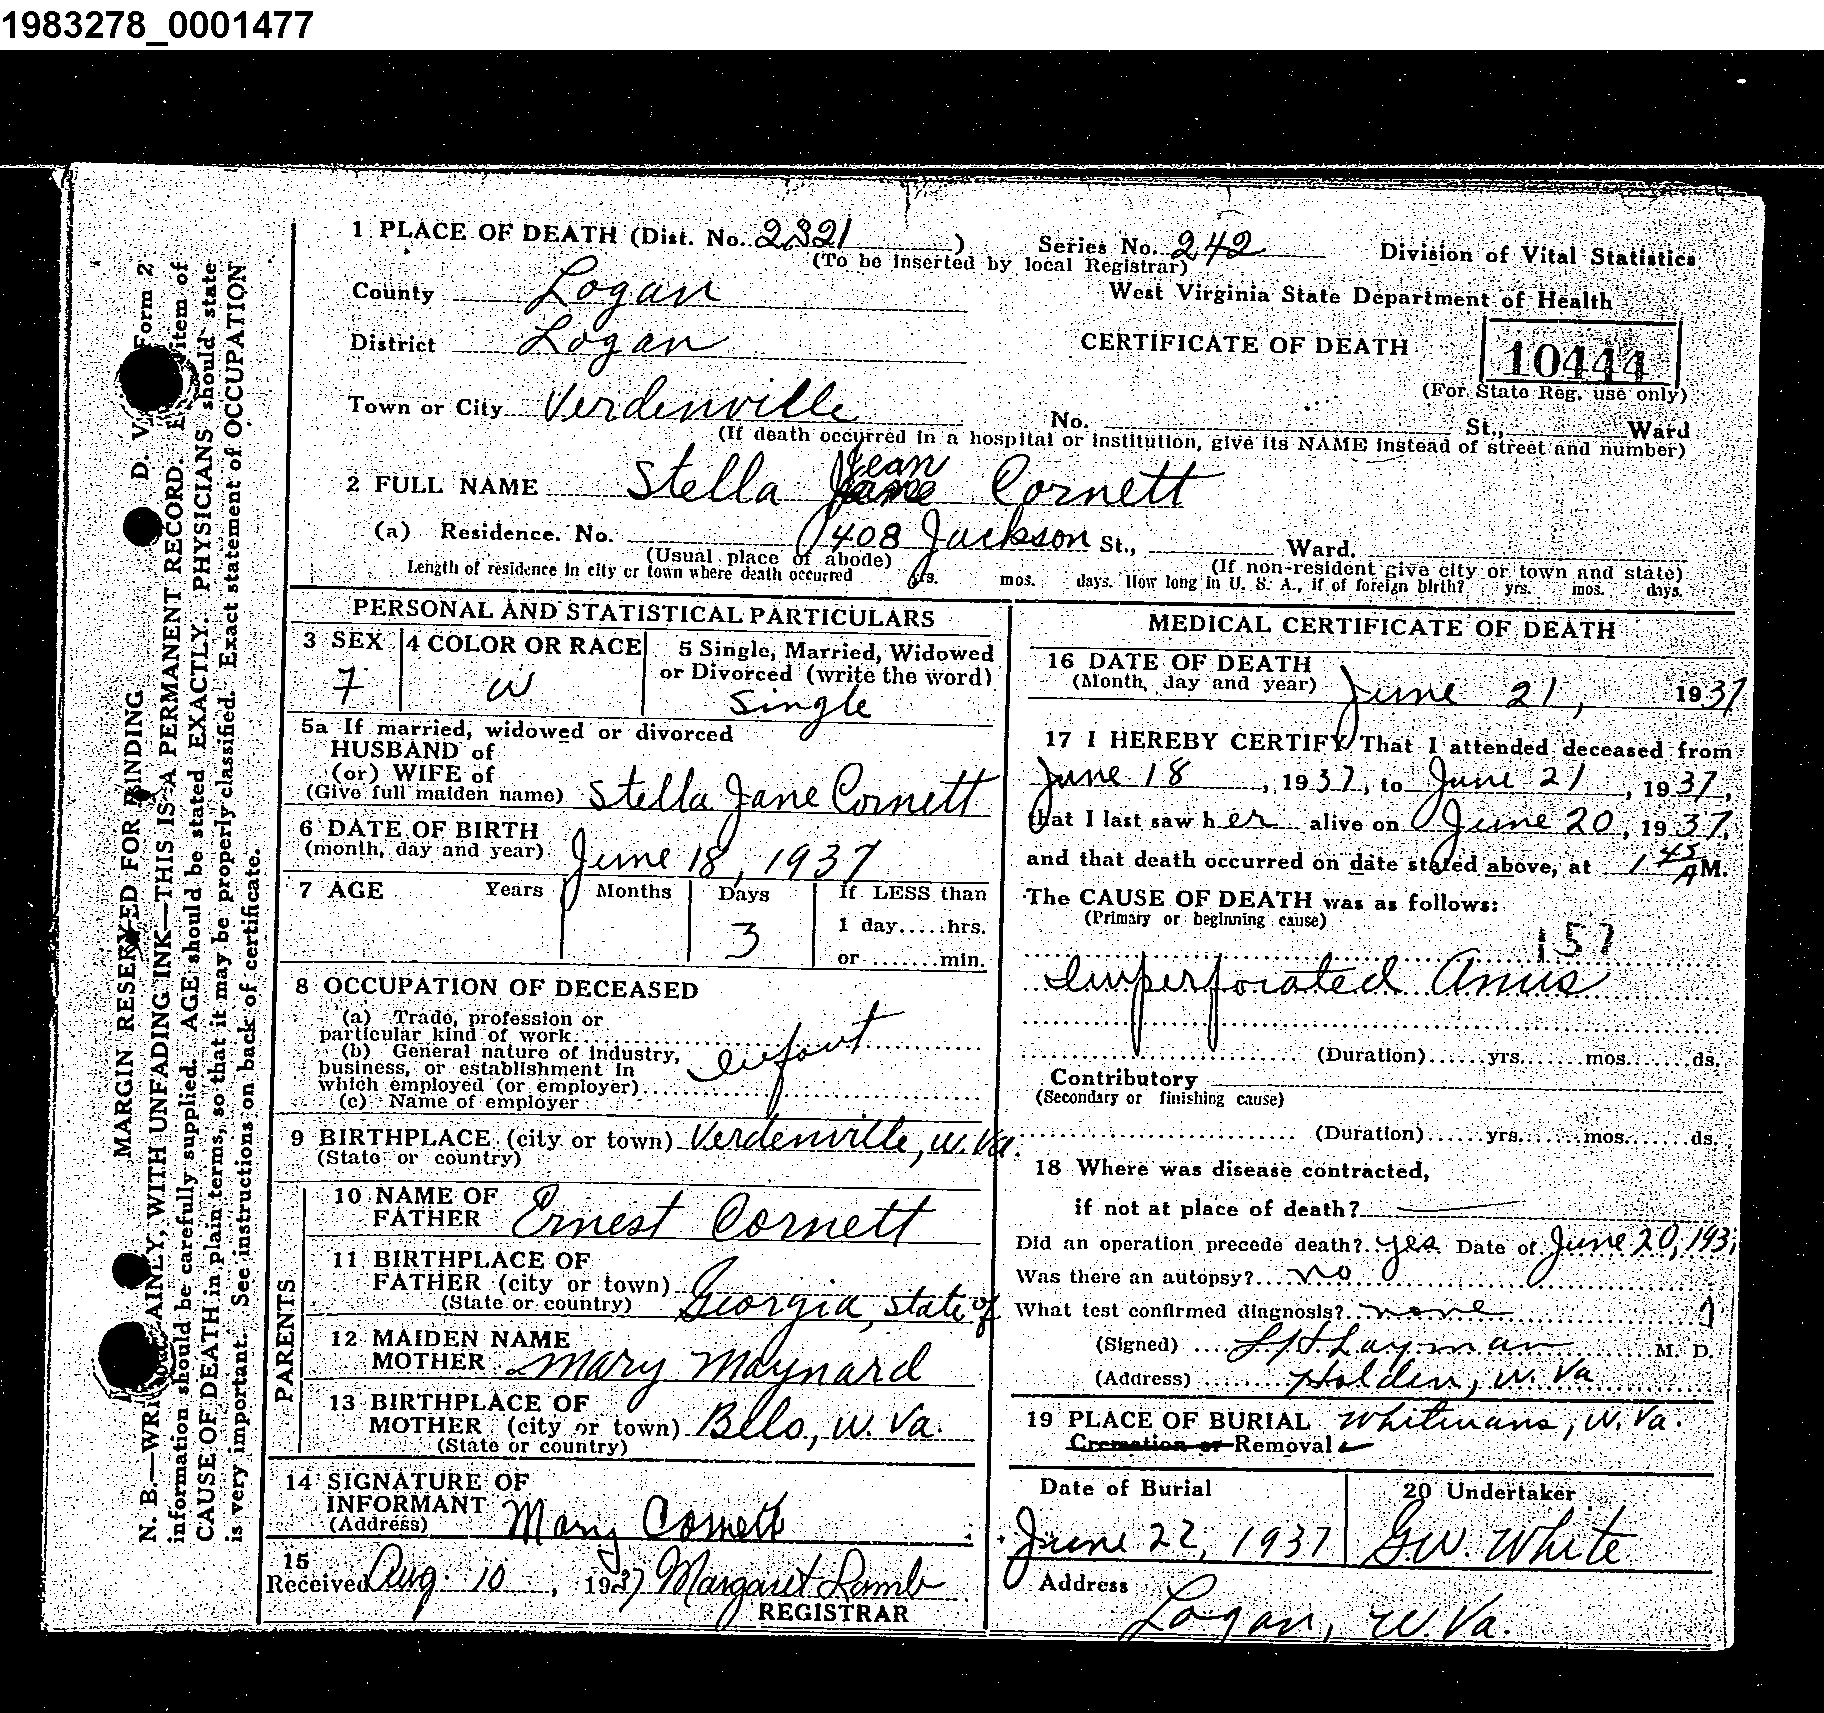 1983278_0001477
1 PLACE OF DEATH (Dist. No. 2321 ) Series No. 242 Division of Vital Statistics
(To be inserted by local Registrar)
County Logan West Virginia State Department of Health
District Logan CERTIFICATE OF DEATH 10444
(For State Reg. use only)
Town or City Verdenville No. St., Ward
(If death occurred in a hospital or institution, give its NAME instead of street and number)
Jean
2 FULL NAME Stella Jane Cornett
(a) Residence. No. 408 Jackson St., Ward.
(Usual place of abode) (If non-resident give city or town and state)
Length of residence in city or town where death occurred yrs. mos. days. How long in U. S. A., if of foreign birth? yrs. mos. days.
PERSONAL AND STATISTICAL PARTICULARS
3 SEX 4 COLOR OR RACE 5 Single, Married, Widowed
or Divorced (write the word)
F W Single
5a If married, widowed or divorced
HUSBAND of
(or) WIFE of
(Give full maiden name) Stella Jane Cornett
6 DATE OF BIRTH
(month, day and year) June 18, 1937
7 AGE Years Months Days If LESS than
1 day.....hrs.
3
or .......min.
8 OCCUPATION OF DECEASED
(a) Trade, profession or
particular kind of work
(b) General nature of industry,
business, or establishment in
which employed (or employer)
(c) Name of employer
infant
9 BIRTHPLACE (city or town) Verdenville, W. Va.
(State or country)
PARENTS
10 NAME OF
FATHER Ernest Cornett
11 BIRTHPLACE OF
FATHER (city or town)
(State or country) Georgia, State of
12 MAIDEN NAME
MOTHER Mary Maynard
13 BIRTHPLACE OF
MOTHER (city or town) Belo, W. Va.
(State or country)
14 SIGNATURE OF
INFORMANT
(Address) Mary Cornett
15
Received Aug. 10, 1937 Margaret Lamb
REGISTRAR
MEDICAL CERTIFICATE OF DEATH
16 DATE OF DEATH
(Month, day and year) June 21, 1937
17 I HEREBY CERTIFY That I attended deceased from
June 18, 1937, to June 21, 1937,
that I last saw h er alive on June 20, 1937,
and that death occurred on date stated above, at 1 45 A M.
The CAUSE OF DEATH was as follows:
(Primary or beginning cause)
157
Imperforated Anus
(Duration)......yrs.......mos.......ds.
Contributory
(Secondary or finishing cause)
(Duration)......yrs.......mos.......ds.
18 Where was disease contracted,
if not at place of death?
Did an operation precede death? yes Date of June 20, 193
Was there an autopsy? no
What test confirmed diagnosis? none
(Signed) Layman M. D.
(Address) Holden, W. Va
19 PLACE OF BURIAL Whitmans, W. Va.
Cremation or Removal
Date of Burial 20 Undertaker
June 22, 1937 G.W. White
Address
Logan, W. Va.
MARGIN RESERVED FOR BINDING D. V Form 2
N. B.—WRITE PLAINLY, WITH UNFADING INK—THIS IS A PERMANENT RECORD. Every item of
information should be carefully supplied. AGE should be stated EXACTLY. PHYSICIANS should state
CAUSE OF DEATH in plain terms, so that it may be properly classified. Exact statement of OCCUPATION
is very important. See instructions on back of certificate.